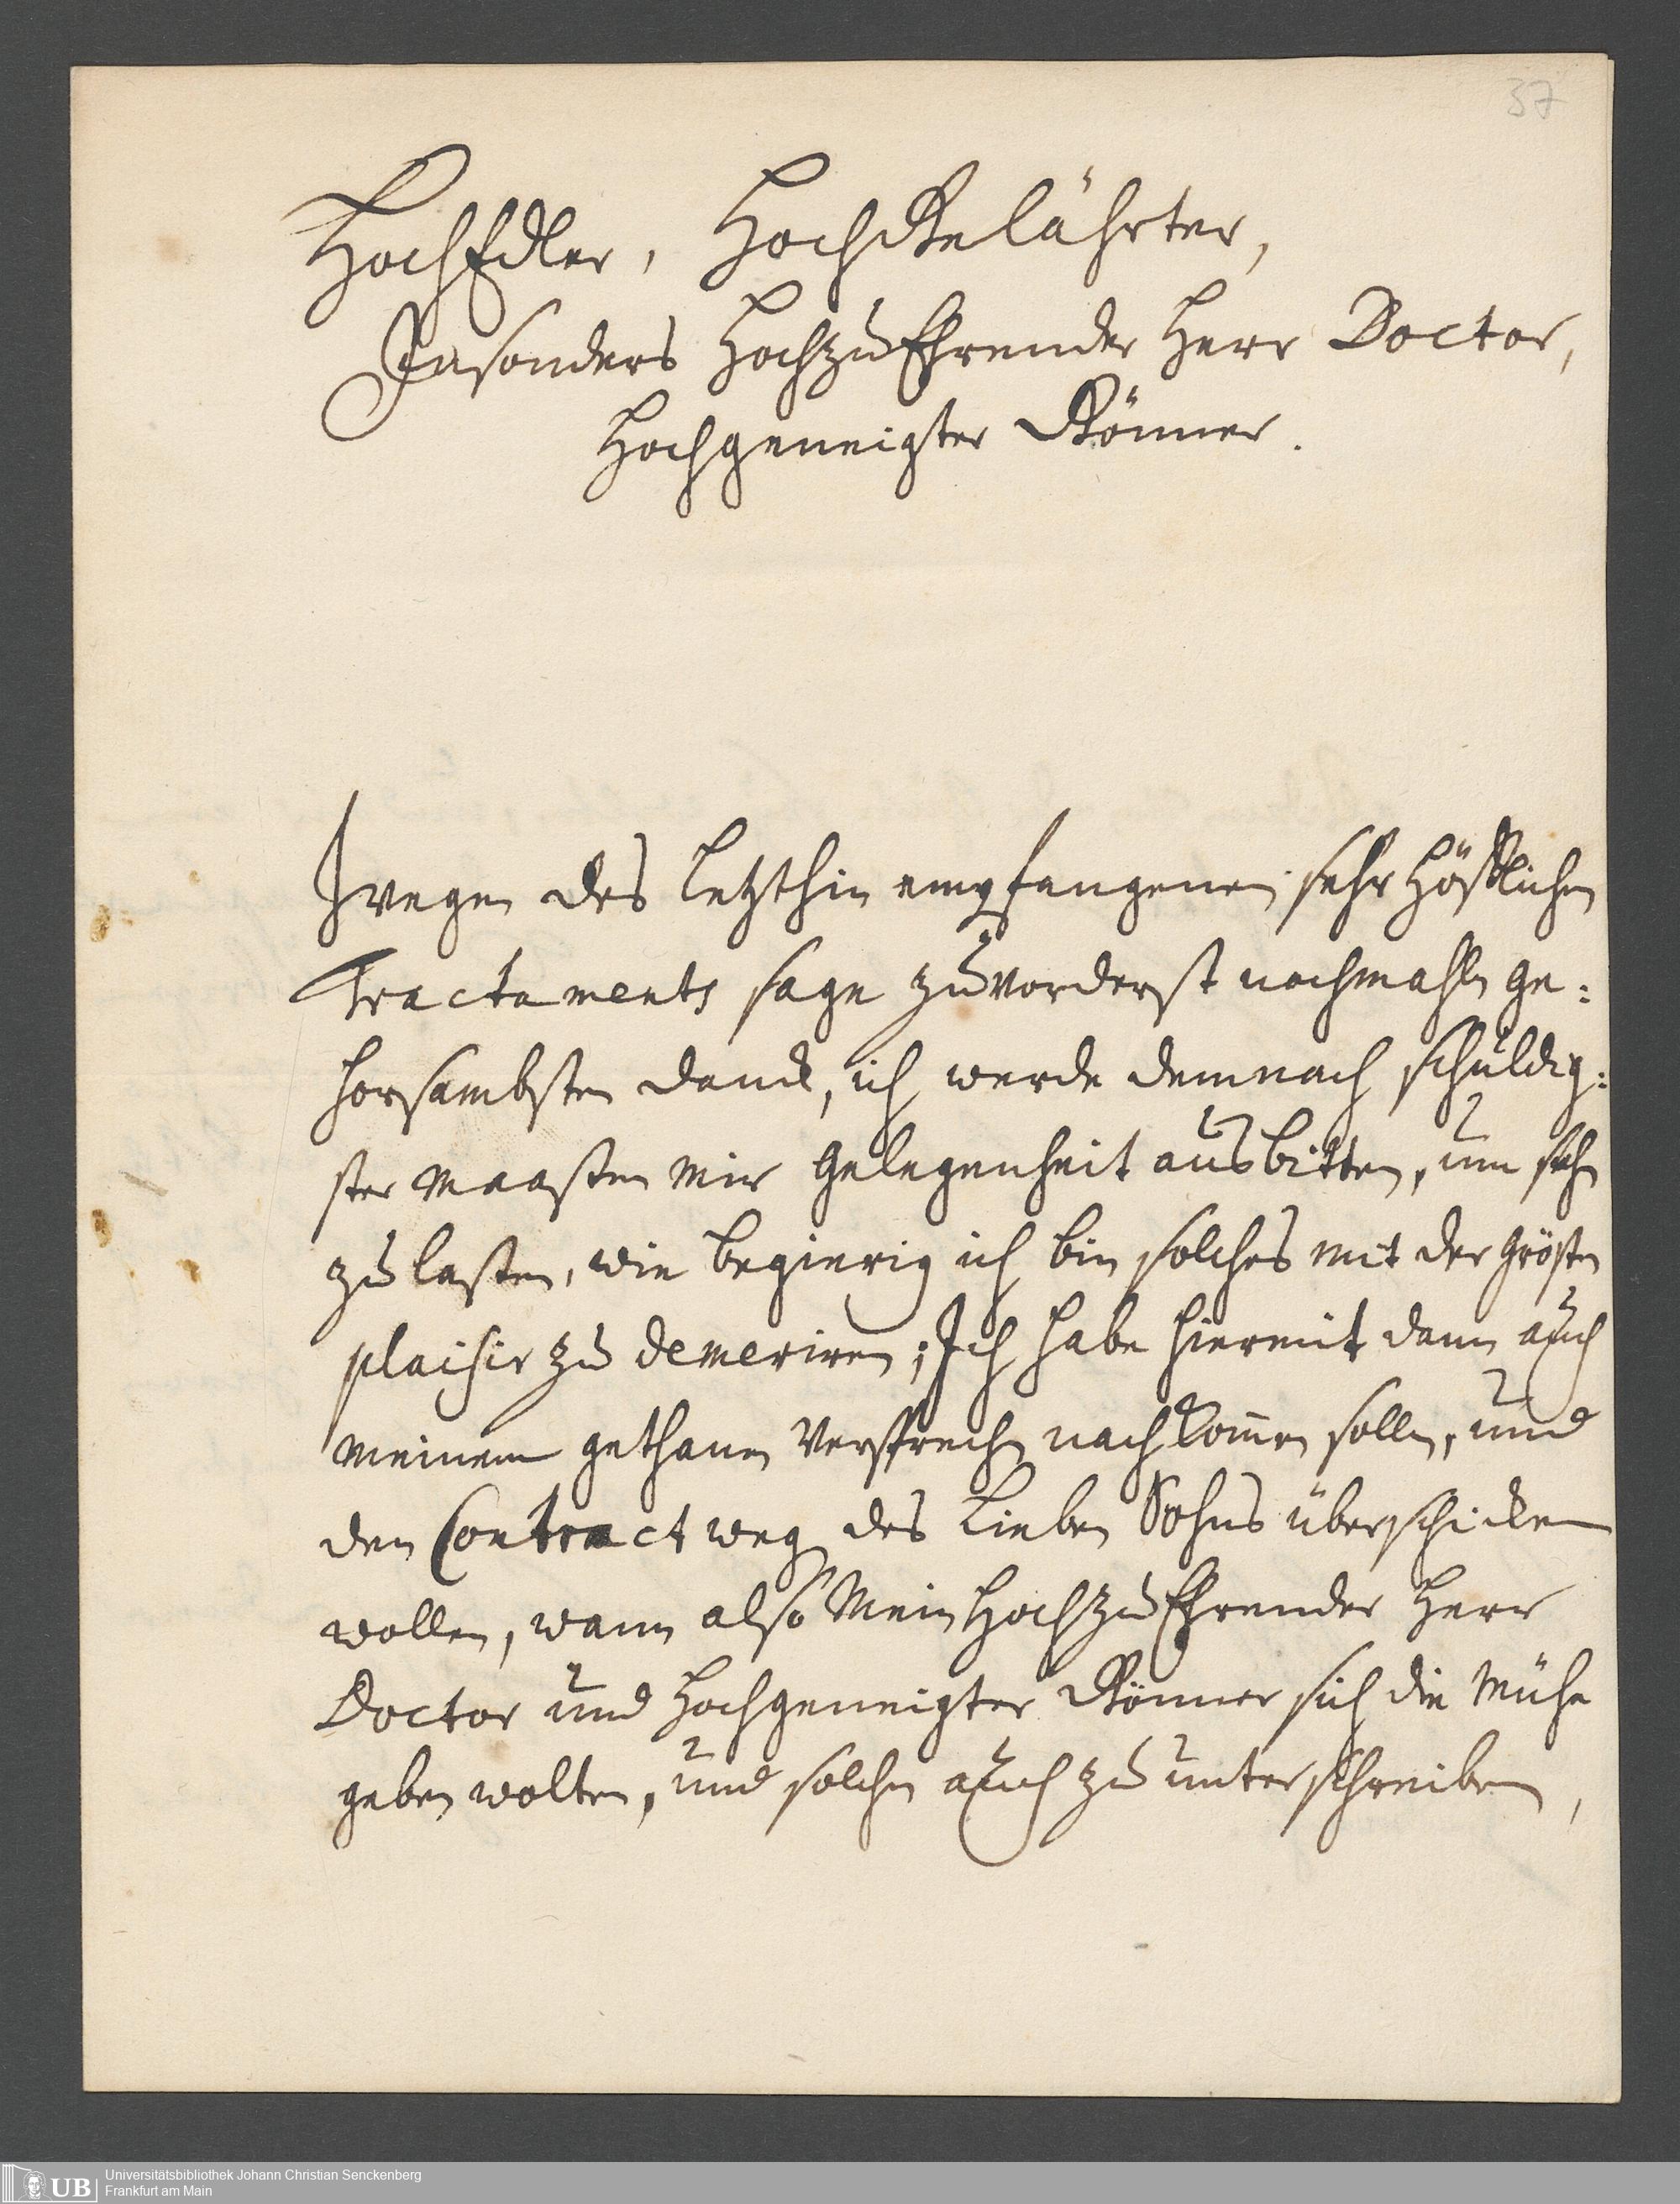 37
HochEdler, HochGelährter,
Insonders HochzuEhrender Herr Doctor,
Hochgeneigter Gönner.
Wegen des Letzthin empfangenen sehr Höfflichen
Tractaments sage zuvorderst nochmahln ge:
horsambsten danck, ich werde demnach schuldig:
ster maassen mir gelegenheit ausbitten, um sehn
zu lassen, wie begierig ich bin solches mit der grösten
plaisir zu demeriren; Ich habe hiermit dann auch
meinem gethanen Versprechen nachkommen sollen, und
den Contract wegen des Lieben Sohns überschicken
wollen, wann also Mein HochzuEhrender Herr
Doctor und Hochgeneigter Gönner sich die Mühe
geben wolten, und solchen auch zu unterschreiben,
UB Universitätsbibliothek Johann Christian Senckenberg
Frankfurt am Main